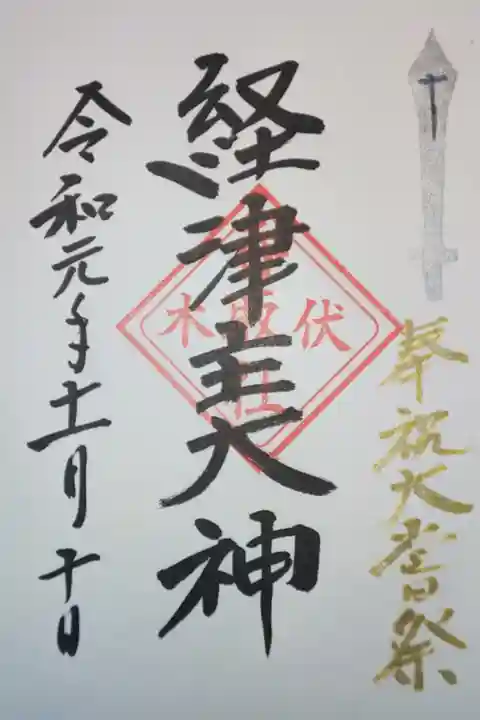 奉祝大嘗祭
経津主大神
伏阪木社
令和元年十一月十日